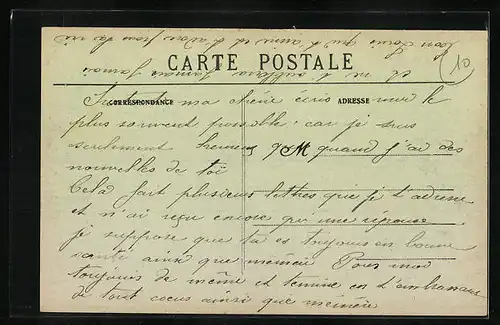 CARTE POSTALE
CORRESPONDANCE
ADRESSE
10
ma chérie écris moi le
plus souvent possible car je suis
seulement M quand j'ai des
nouvelles de toi
Cela fait plusieurs lettres que je t'adresse
et n'ai reçu encore qu'une réponse
je suppose que tu es toujours en bonne
santé ainsi que mémère Pour moi
toujours de même et termine en t'embrassant
de tout coeur ainsi que mémère
ton Louis qui t'aime et t'adore pour la vie
et ne t'oubliera jamais jamais